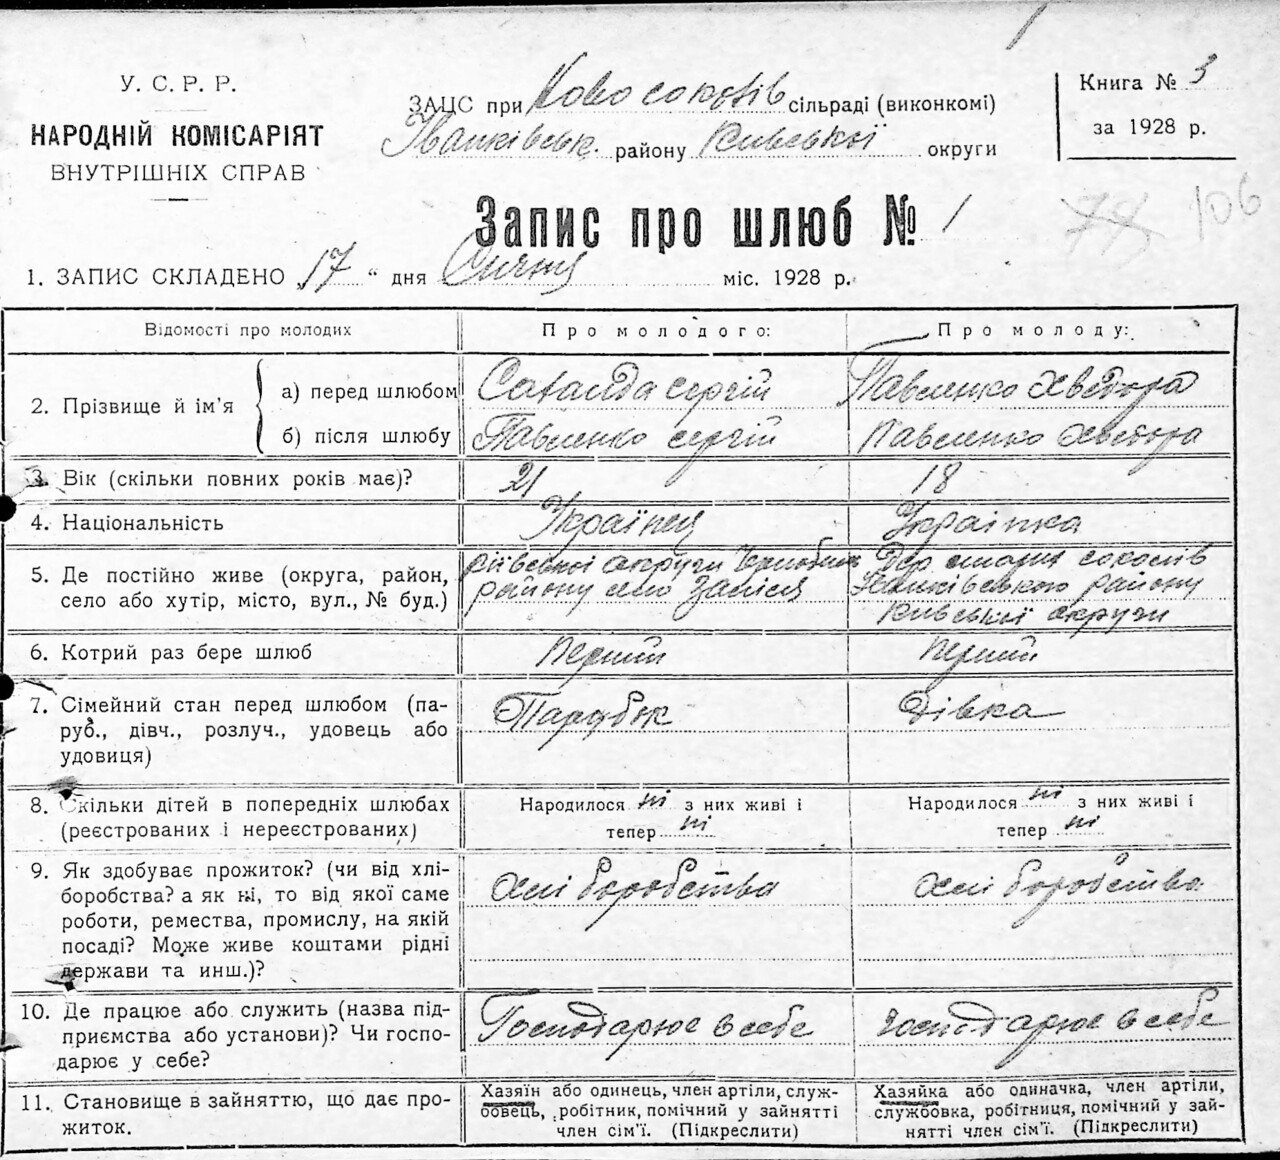 У. С. Р. Р.
НАРОДНІЙ КОМІСАРІЯТ
ВНУТРІШНІХ СПРАВ
ЗАЦС при Ново соколів сільраді (виконкомі)
Іванківськ. району Київської округи
Книга № 3
за 1928 р.
106
Запис про шлюб № 1
1. ЗАПИС СКЛАДЕНО 17 “ дня Січня міс. 1928 р.
Відомості про молодих
Про молодого:
Про молоду:
2. Прізвище й ім’я
а) перед шлюбом
Сергій
Павленко Хведора
б) після шлюбу
Павленко Сергій
Павленко Хведора
3. Вік (скільки повних років має)?
21
18
4. Національність
Українец
Українка
5. Де постійно живе (округа, район,
село або хутір, місто, вул., № буд.)
Київської округи
району село Залісся
соколів
Іванківського району
Київської округи
6. Котрий раз бере шлюб
Перший
Перший
7. Сімейний стан перед шлюбом (па-
руб., дівч., розлуч., удовець або
удовиця)
Парубок
Дівка
8. Скільки дітей в попередніх шлюбах
(реєстрованих і нереєстрованих)
Народилося ні з них живі і
тепер ні
Народилося ні з них живі і
тепер ні
9. Як здобуває прожиток? (чи від хлі-
боробства? а як ні, то від якої саме
роботи, ремества, промислу, на якій
посаді? Може живе коштами рідні
держави та инш.)?
Хлі боробства
Хлі боробства
10. Де працює або служить (назва під-
приємства або установи)? Чи госпо-
дарює у себе?
Господарює в себе
Господарює в себе
11. Становище в зайняттю, що дає про-
житок.
Хазяїн або одинець, член артіли, служ-
бовець, робітник, помічний у зайнятті
член сім’ї. (Підкреслити)
Хазяйка або одиначка, член артіли,
службовка, робітниця, помічний у зай-
нятті член сім’ї. (Підкреслити)